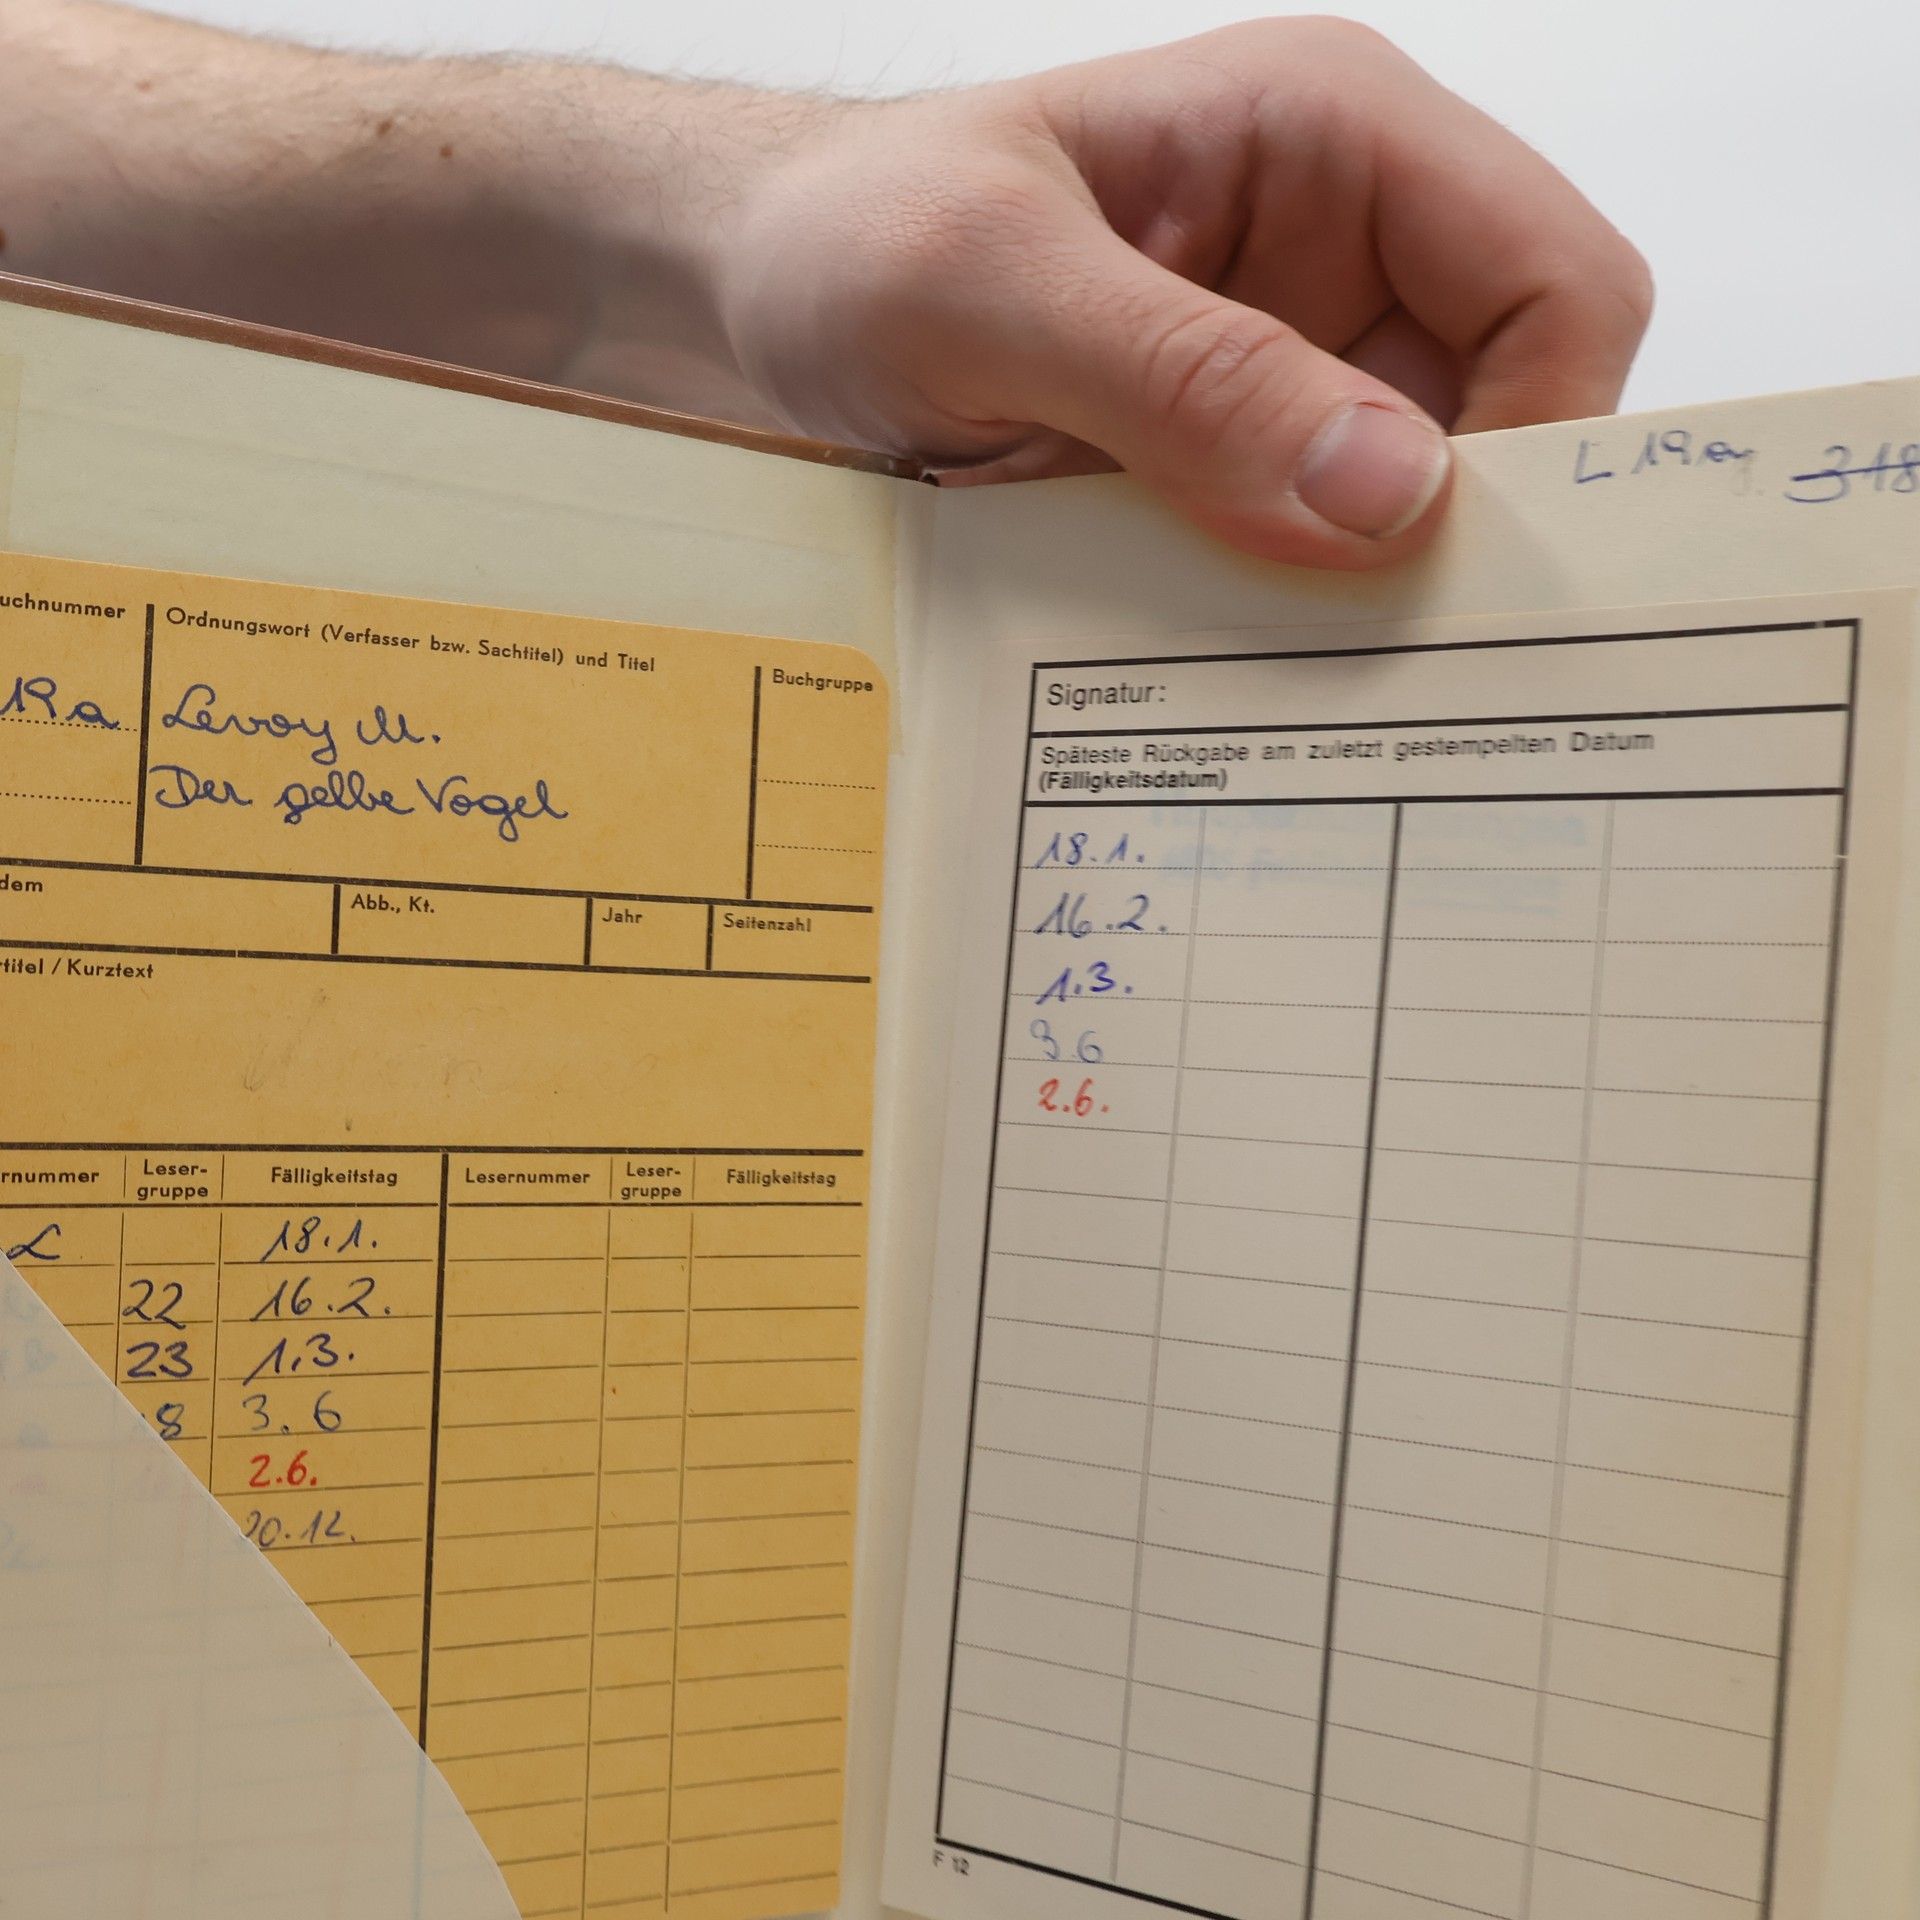 uchnummer
Ordnungswort (Verfasser bzw. Sachtitel) und Titel
Buchgruppe
19a
Levoy M.
Der gelbe Vogel
dem
Abb., Kt.
Jahr
Seitenzahl
titel / Kurztext
rnummer
Leser-
gruppe
Fälligkeitstag
Lesernummer
Leser-
gruppe
Fälligkeitstag
L 18.1.
22 16.2.
23 1.3.
8 3.6
2.6.
20.12.
L 19 318
Signatur:
Späteste Rückgabe am zuletzt gestempelten Datum
(Fälligkeitsdatum)
18.1.
16.2.
1.3.
3.6
2.6.
F 12